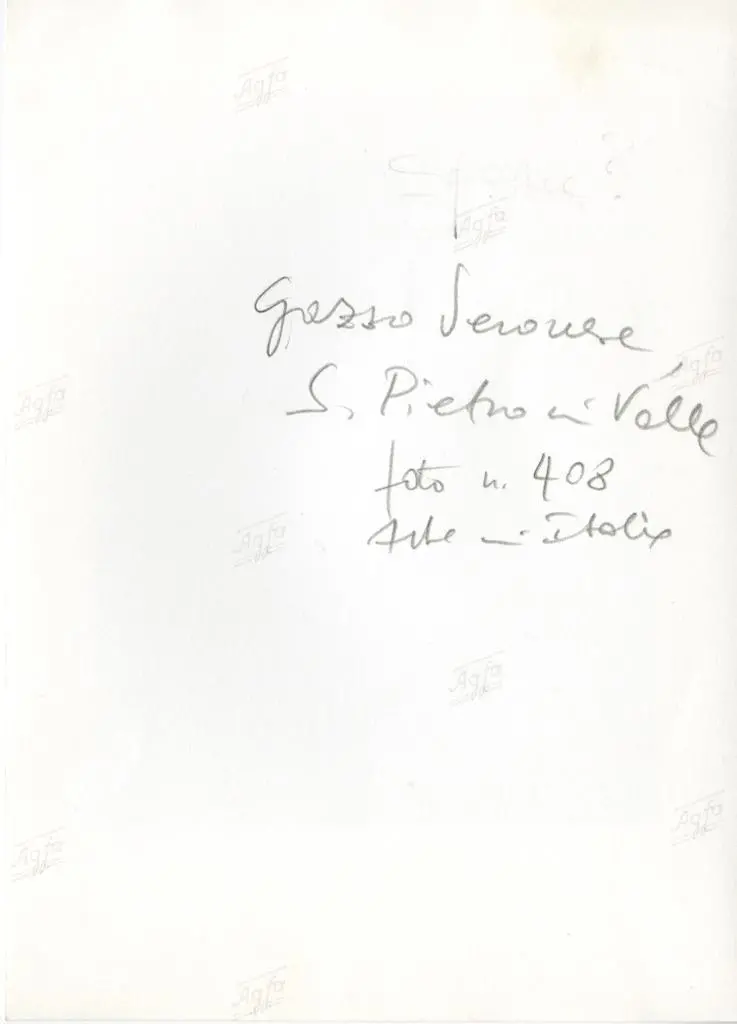 Agfa
Agfa
Gazzo Veronese
Agfa
S. Pietro in Valle
Agfa
foto n. 408
Arte in Italia
Agfa
Agfa
Agfa
Agfa
Agfa